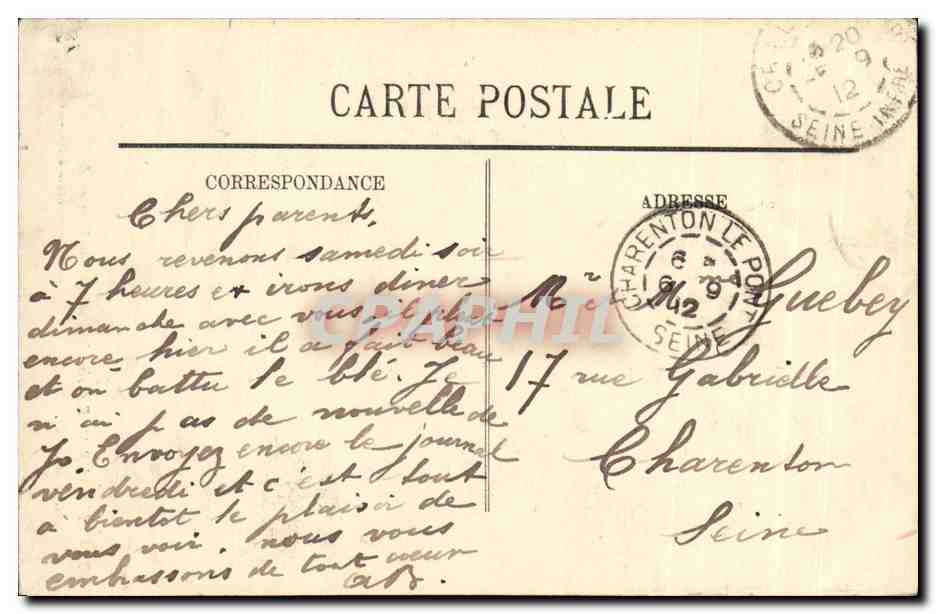 CARTE POSTALE
20
9
12
SEINE-INFRE
CORRESPONDANCE
Chers parents,
Nous revenons samedi soir
à 7 heures et irons diner
dimanche avec vous il pleut
encore hier il a fait beau
et on battu le blé. Je
n'ai pas de nouvelle de
Jo. Envoyez encore le journal
vendredi et c'est tout
à bientot le plaisir de
vous voir. nous vous
embrassons de tout coeur
ADRESSE
CHARENTON LE PONT
6 9
12
SEINE
Mr et Guebey
17 rue Gabrielle
Charenton
Seine
CPARHIL